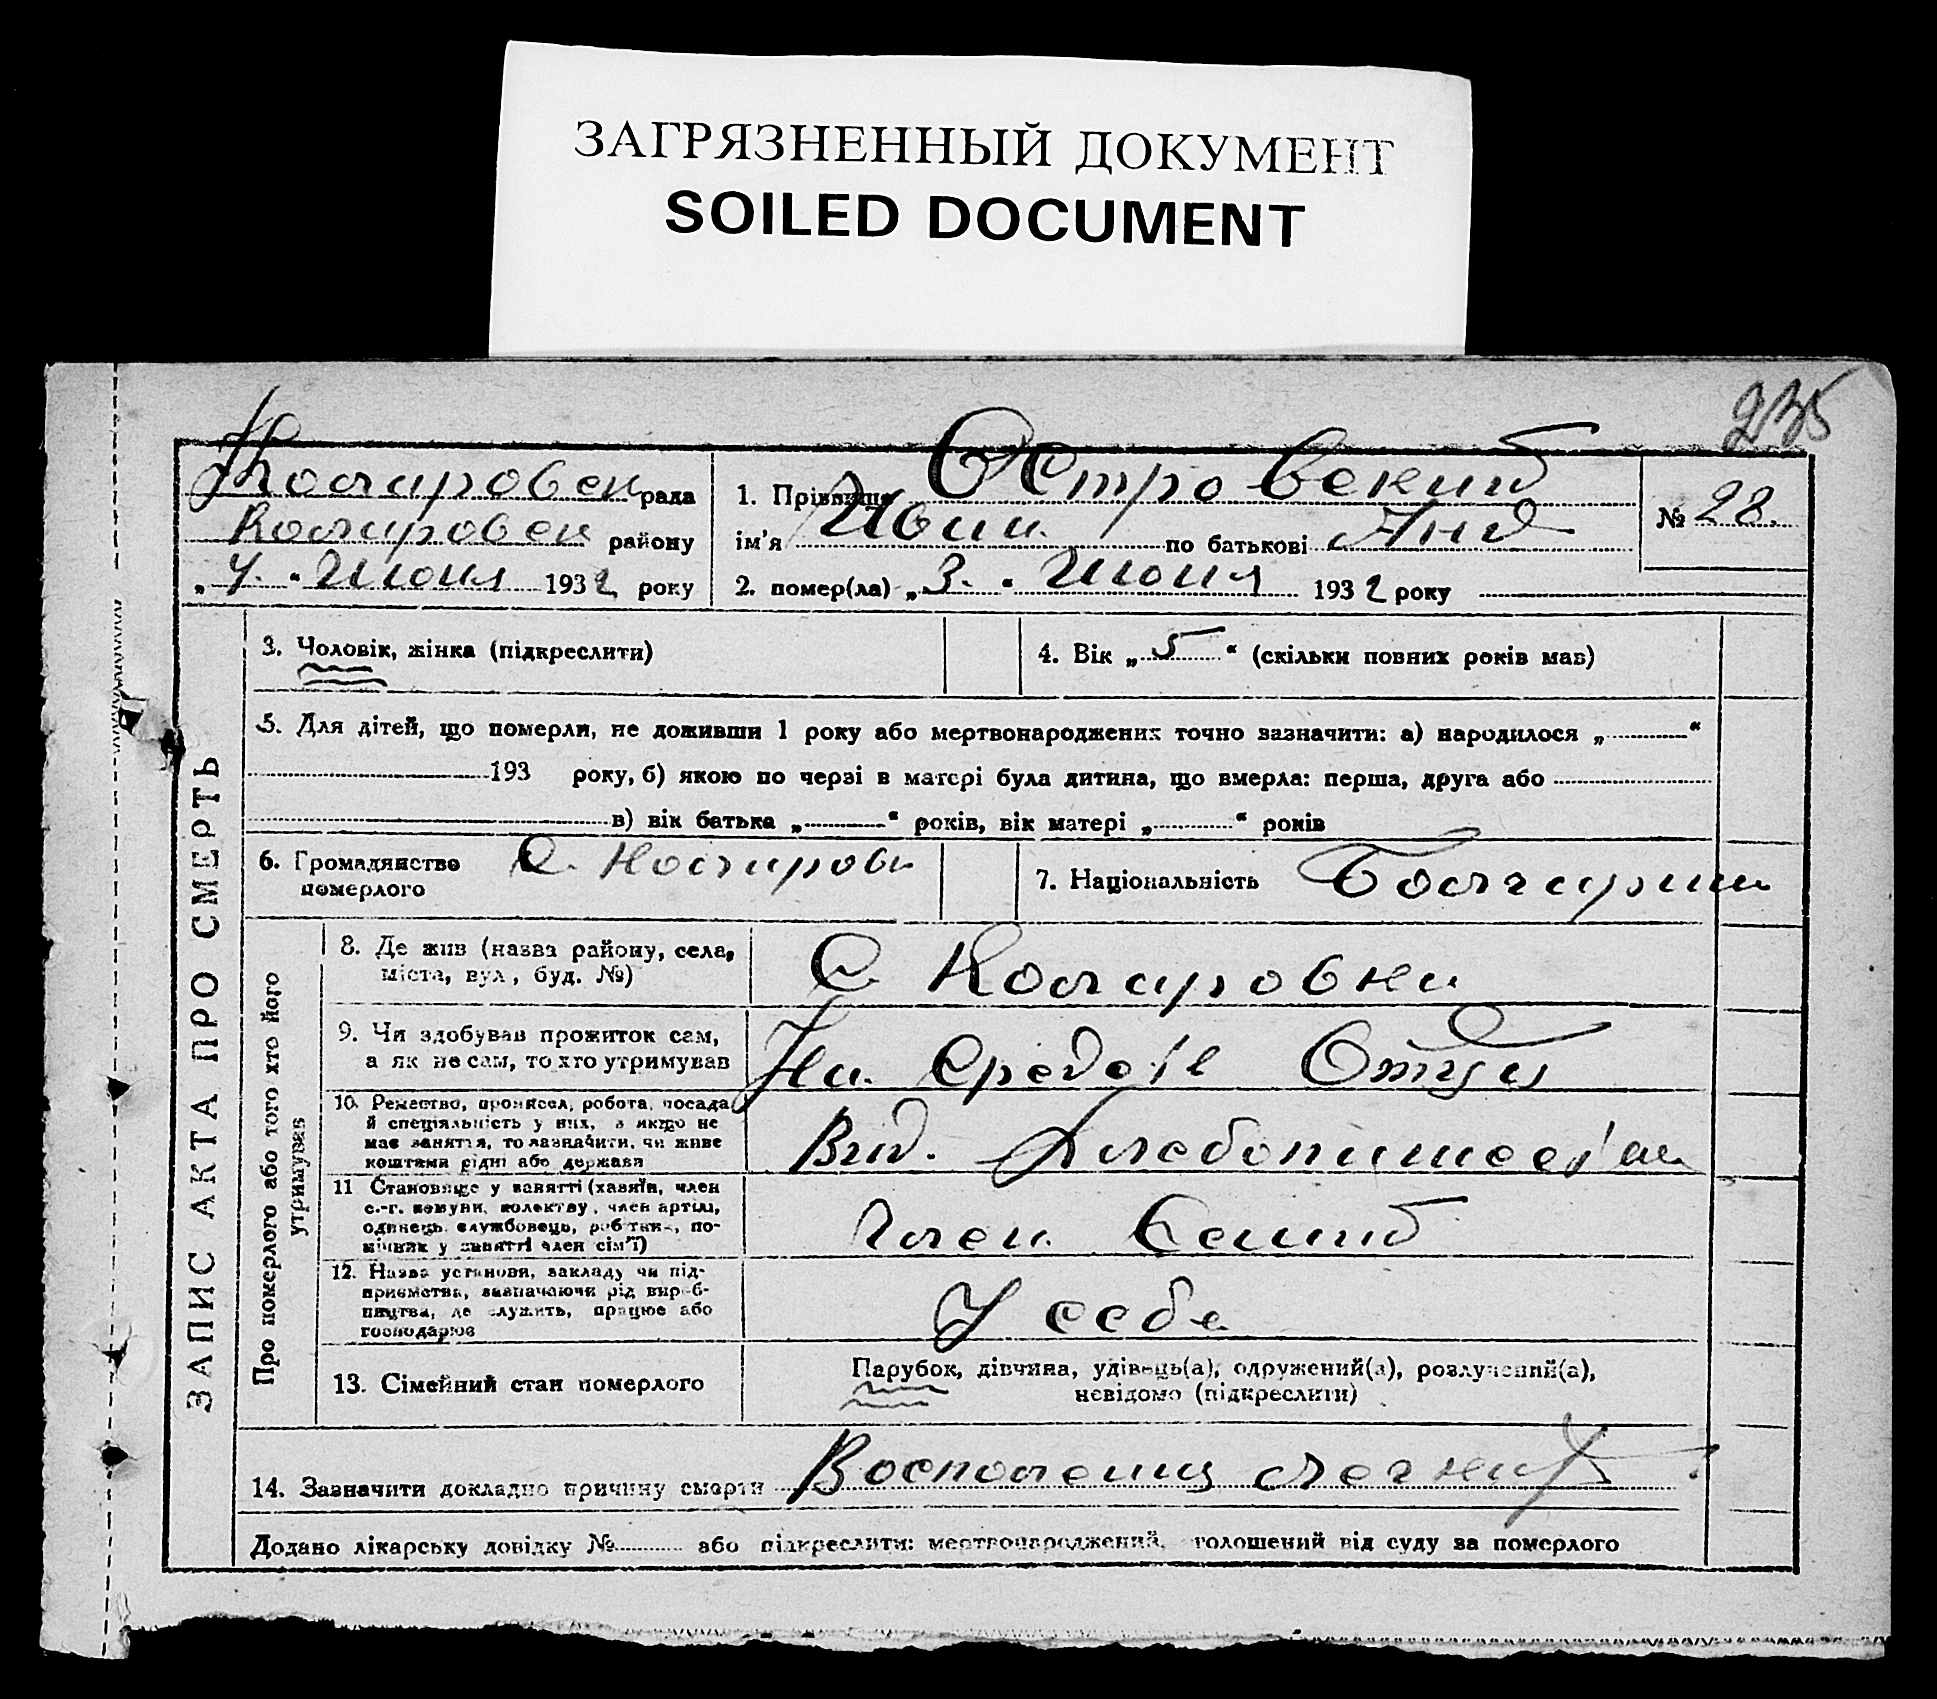 ЗАГРЯЗНЕННЫЙ ДОКУМЕНТ
SOILED DOCUMENT
235
ЗАПИС АКТА ПРО СМЕРТЬ
Коларовск рада
Коларовск району
„4“ Июня 1932 року
1. Прізвище Островский
ім'я Иван по батькові Анд
2. помер(ла) „3.“ Июня 1932 року
№ 28.
3. Чоловік, жінка (підкреслити)
4. Вік „5“ (скільки повних років мав)
5. Для дітей, що померли, не доживши 1 року або мертвонароджених точно зазначити: а) народилося „ “
193 року, б) якою по черзі в матері була дитина, що вмерла: перша, друга або
в) вік батька „ “ років, вік матері „ “ років
6. Громадянство померлого С. Коларовк
7. Національність Болгарин
Про померлого або того хто його утримував
8. Де жив (назва району, села,
міста, вул, буд. №)
С Коларовка
9. Чи здобував прожиток сам,
а як не сам, то хто утримував
На Средств Отца
10. Ремество, промисел, робота, посада
й спеціяльність у них, а якщо не
має заняття, то зазначити, чи живе
коштами рідні або держави
Хлебопашеств
11 Становище у занятті (хазяїн, член
с.-г. комуни, колективу, член артілі,
одинець, службовець, робітник, по-
мічник у занятті член сім'ї)
Член Семьи
12. Назва установи, закладу чи під-
приємства, зазначаючи рід вироб-
ництва, де служить, працює або
господарює
У себе
13. Сімейний стан померлого
Парубок, дівчина, удівець(а), одружений(а), розлучений(а),
невідомо (підкреслити)
14. Зазначити докладно причину смерти Воспаление легких
Додано лікарську довідку № або підкреслити: мертвонароджений, оголошений від суду за померлого